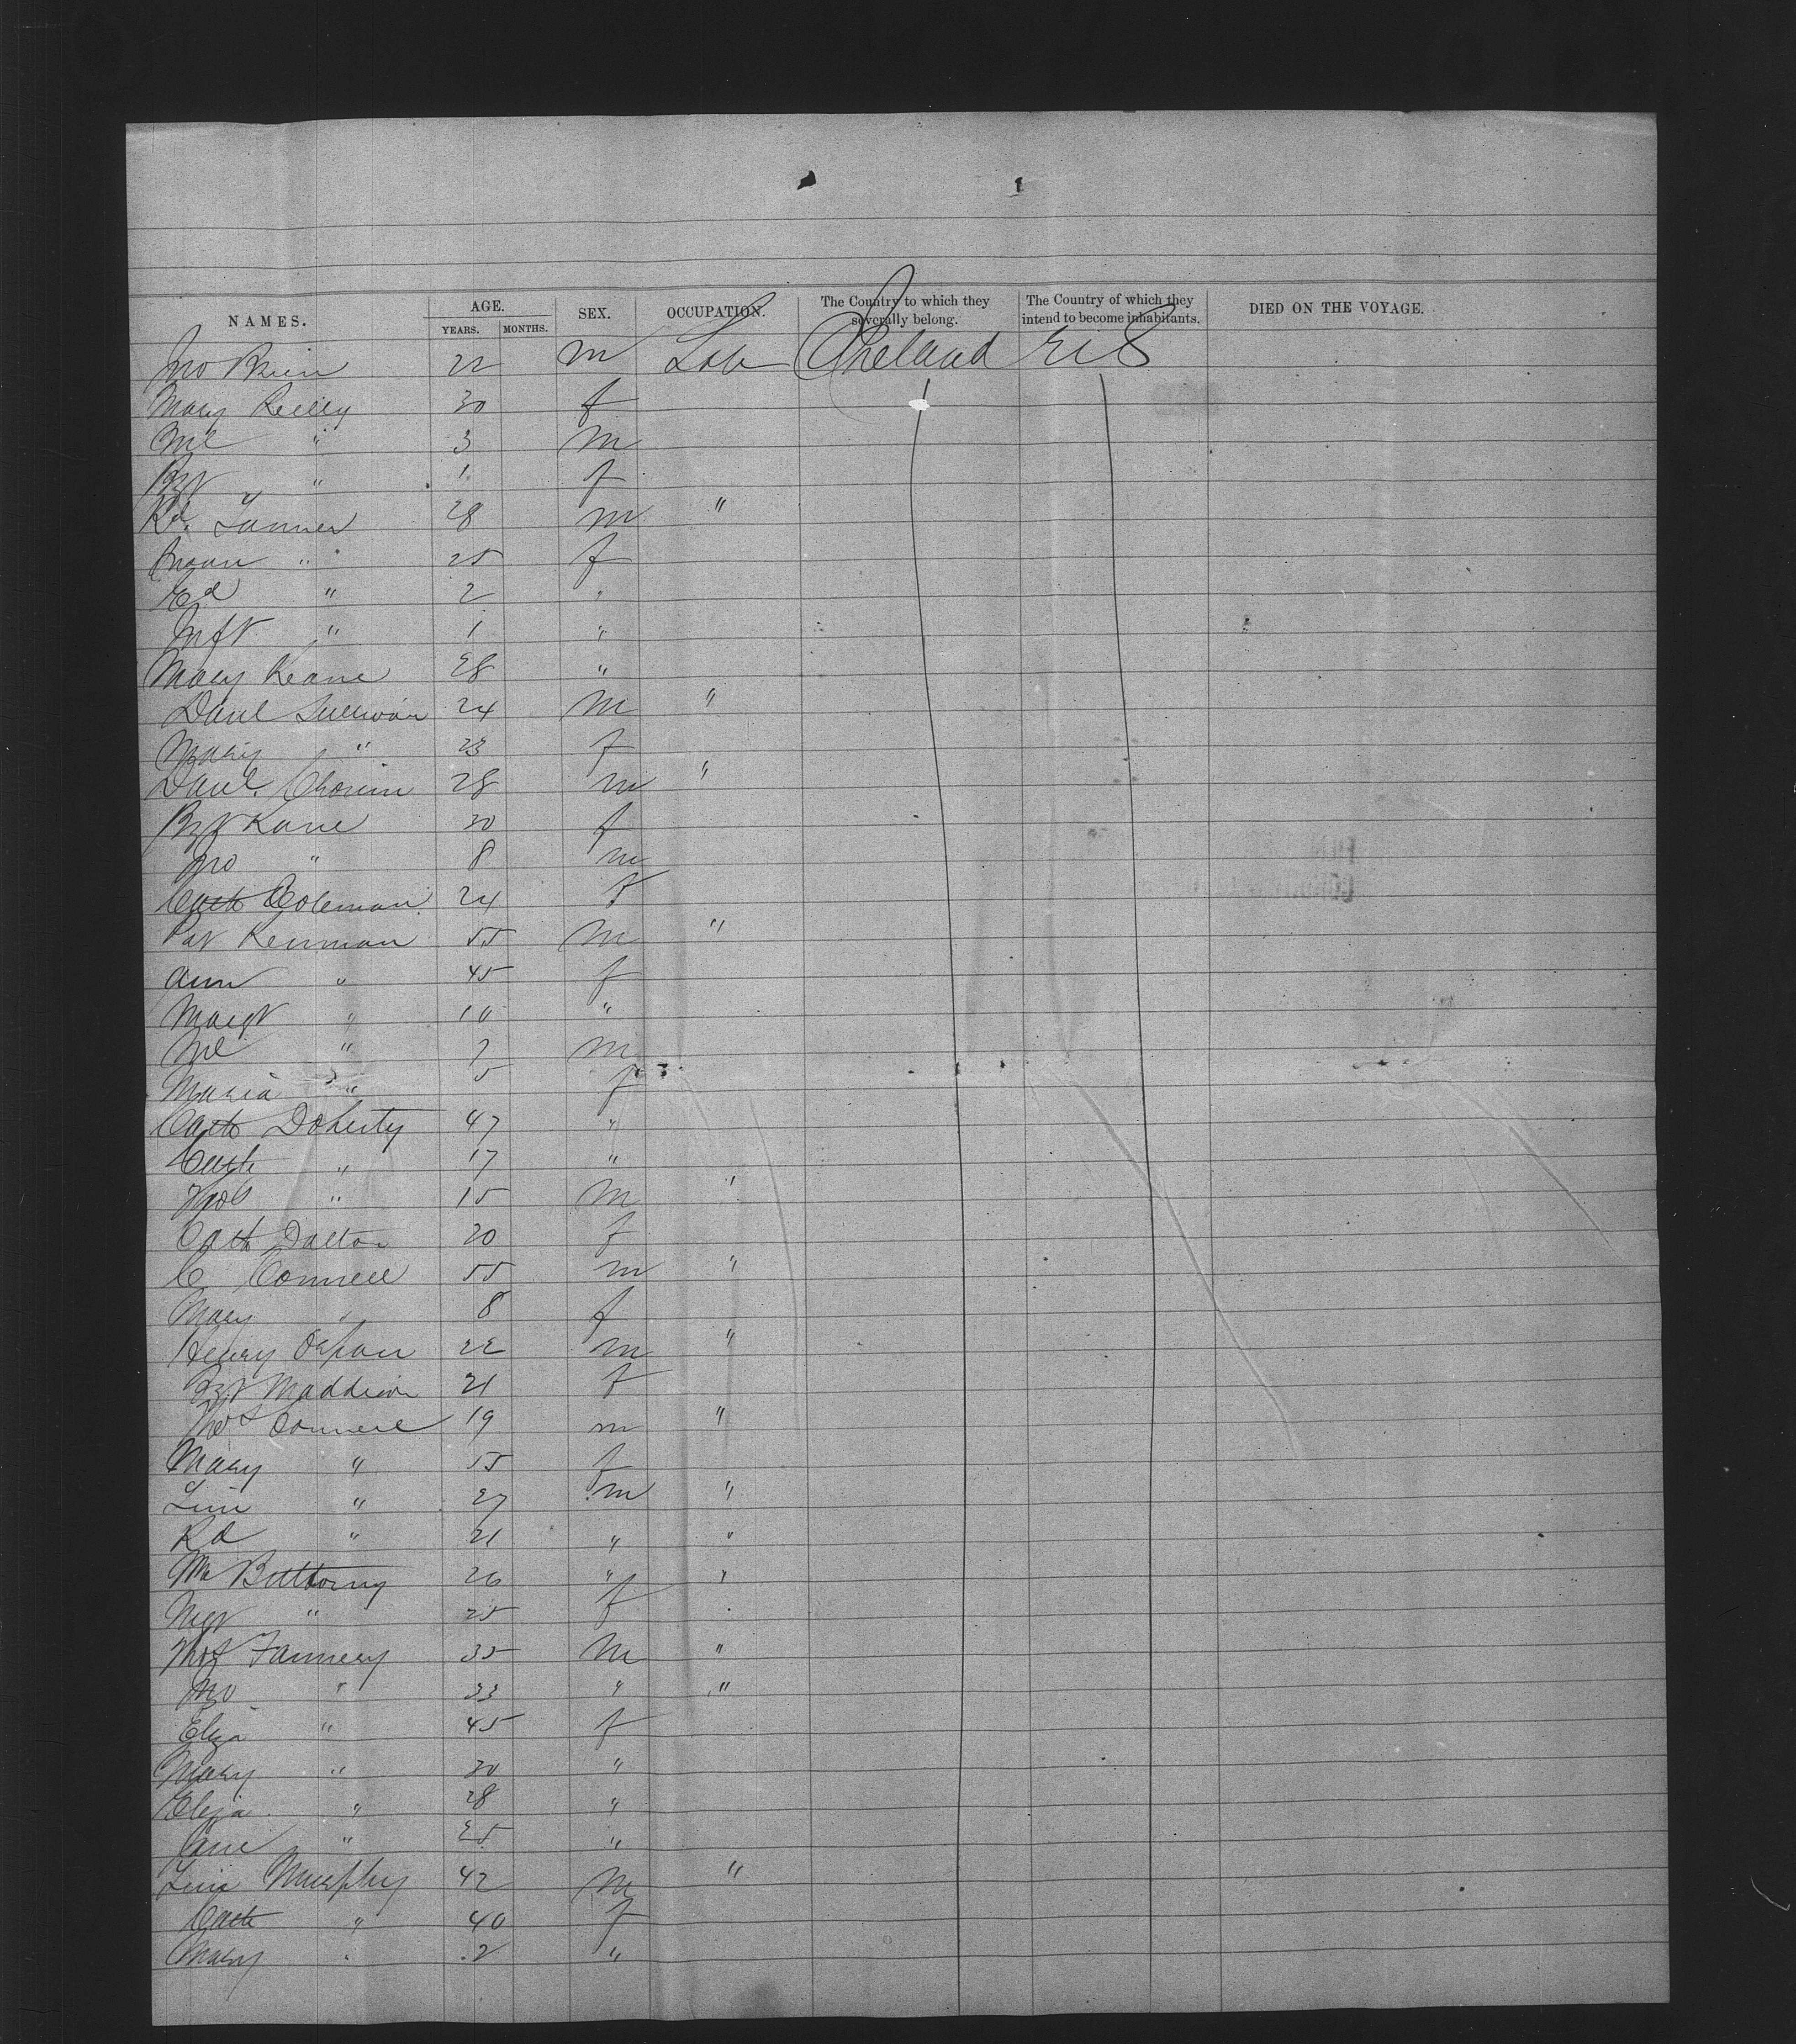 NAMES. AGE. YEARS. MONTHS. SEX. OCCUPATION. The Country to which they severally belong. The Country of which they intend to become inhabitants. DIED ON THE VOYAGE.
Jno Brien 22 m Lab Ireland U S
Mary Reilly 30 f
Ml " 3 m
Bgt " 1 f
Rd. 28 m "
" 25 f
Ed " 2 "
Inft " 1 "
Mary Keane 28 "
Danl Sullivan 24 m "
Mary " 23 f
Danl. 28 m "
Bgt Kane 30 f
Jno " 8 m
Cath Coleman 24 f
Pat 55 m "
Ann " 45 f
Margt " 10 "
Ml " 7 m
Maria " 5 f
Cath Doherty 47 "
Cath " 17 "
Thos " 15 m "
Cath Dalton 20 f
C Connell 55 m "
Mary " 8 f
Henry 22 m "
Bgt 21 f
Connell 19 m "
Mary " 15 f
Tim " 27 m "
Rd " 21 " "
26 " "
Mgt " 25 f
Thos 35 m "
Jno " 33 " "
Eliza " 45 f
Mary " 30 "
Eliza " 28 "
" 25 "
Tim Murphy 42 m "
Cath " 40 f
Mary " 2 "